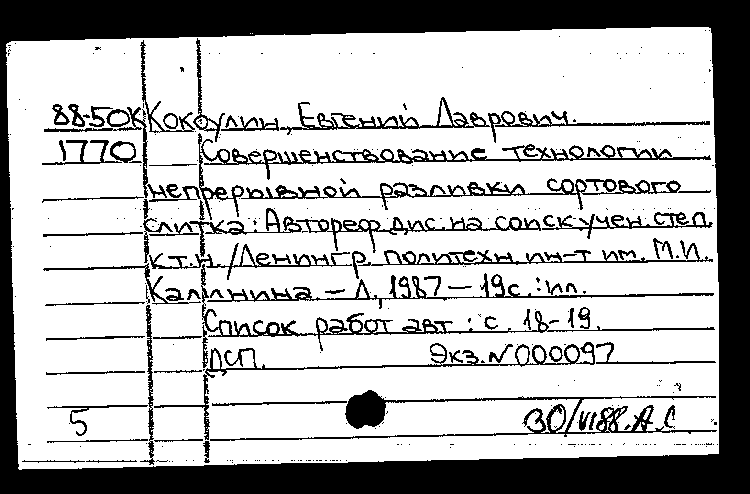 88-50К Кокоулин, Евгений Лаврович.
1770 Совершенствование технологии
непрерывной разливки сортового
слитка: Автореф. дис. на соиск. учен. степ.
к.т.н. /Ленингр. политехн. ин-т им. М.И.
Калинина – Л., 1987 – 19с. : ил.
Список работ авт.: с. 18-19.
ДСП. Экз. N 000097
5 30/VI88. А.С